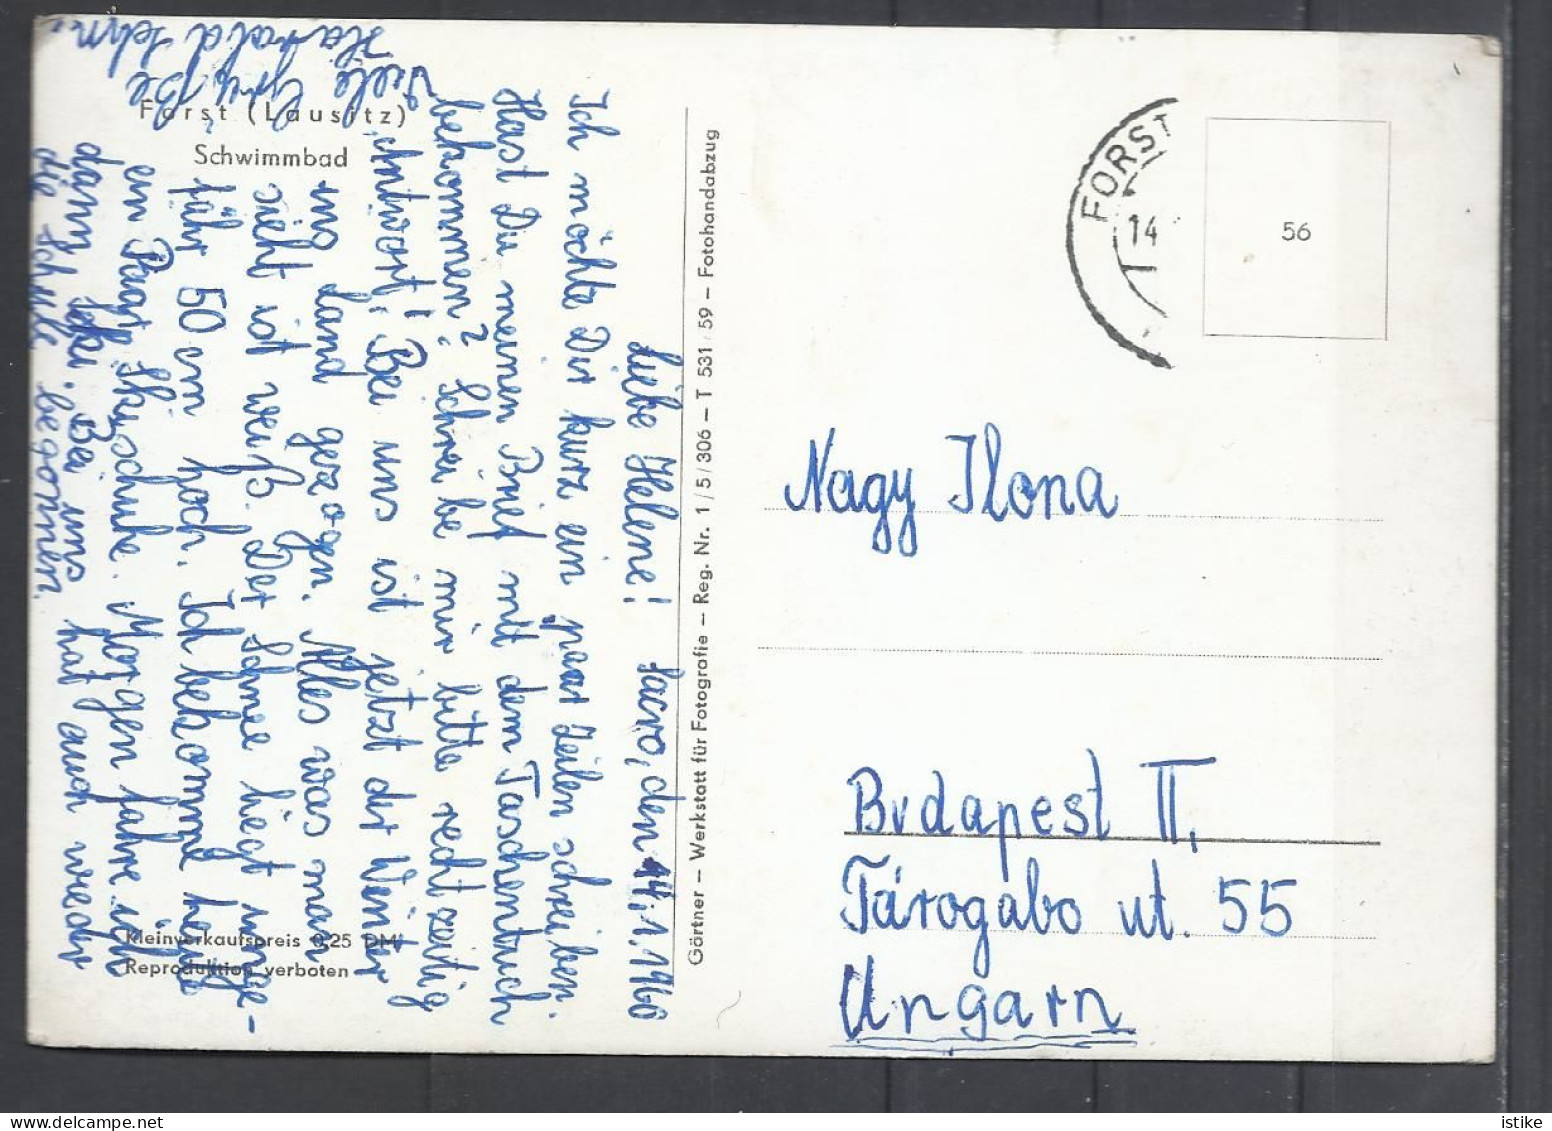 Forst (Lausitz)
Schwimmbad
Sacro, den 14.1.1960
Liebe Helene!
Ich möchte Dir kurz ein paar Zeilen schreiben.
Hast Du meinen Brief mit dem Taschentuch
bekommen? Schreibe mir bitte recht zeitig
Antwort! Bei uns ist jetzt der Winter
ins Land gezogen. Alles was man
sieht ist weiß. Der Schnee liegt unge-
fähr 50 cm hoch. Ich bekomme heute
ein Paar Skischuhe. Morgen fahre ich
dann Ski. Bei uns hat auch wieder
die Schule begonnen.
Viele Grüße
Harald Jehn.
Kleinverkaufspreis 0,25 DM
Reproduktion verboten
Gärtner – Werkstatt für Fotografie – Reg. Nr. 1/5/306 – T 531/59 – Fotohandabzug
FORST
14
56
Nagy Ilona
Budapest II,
Tárogabo ut. 55
Ungarn
istike